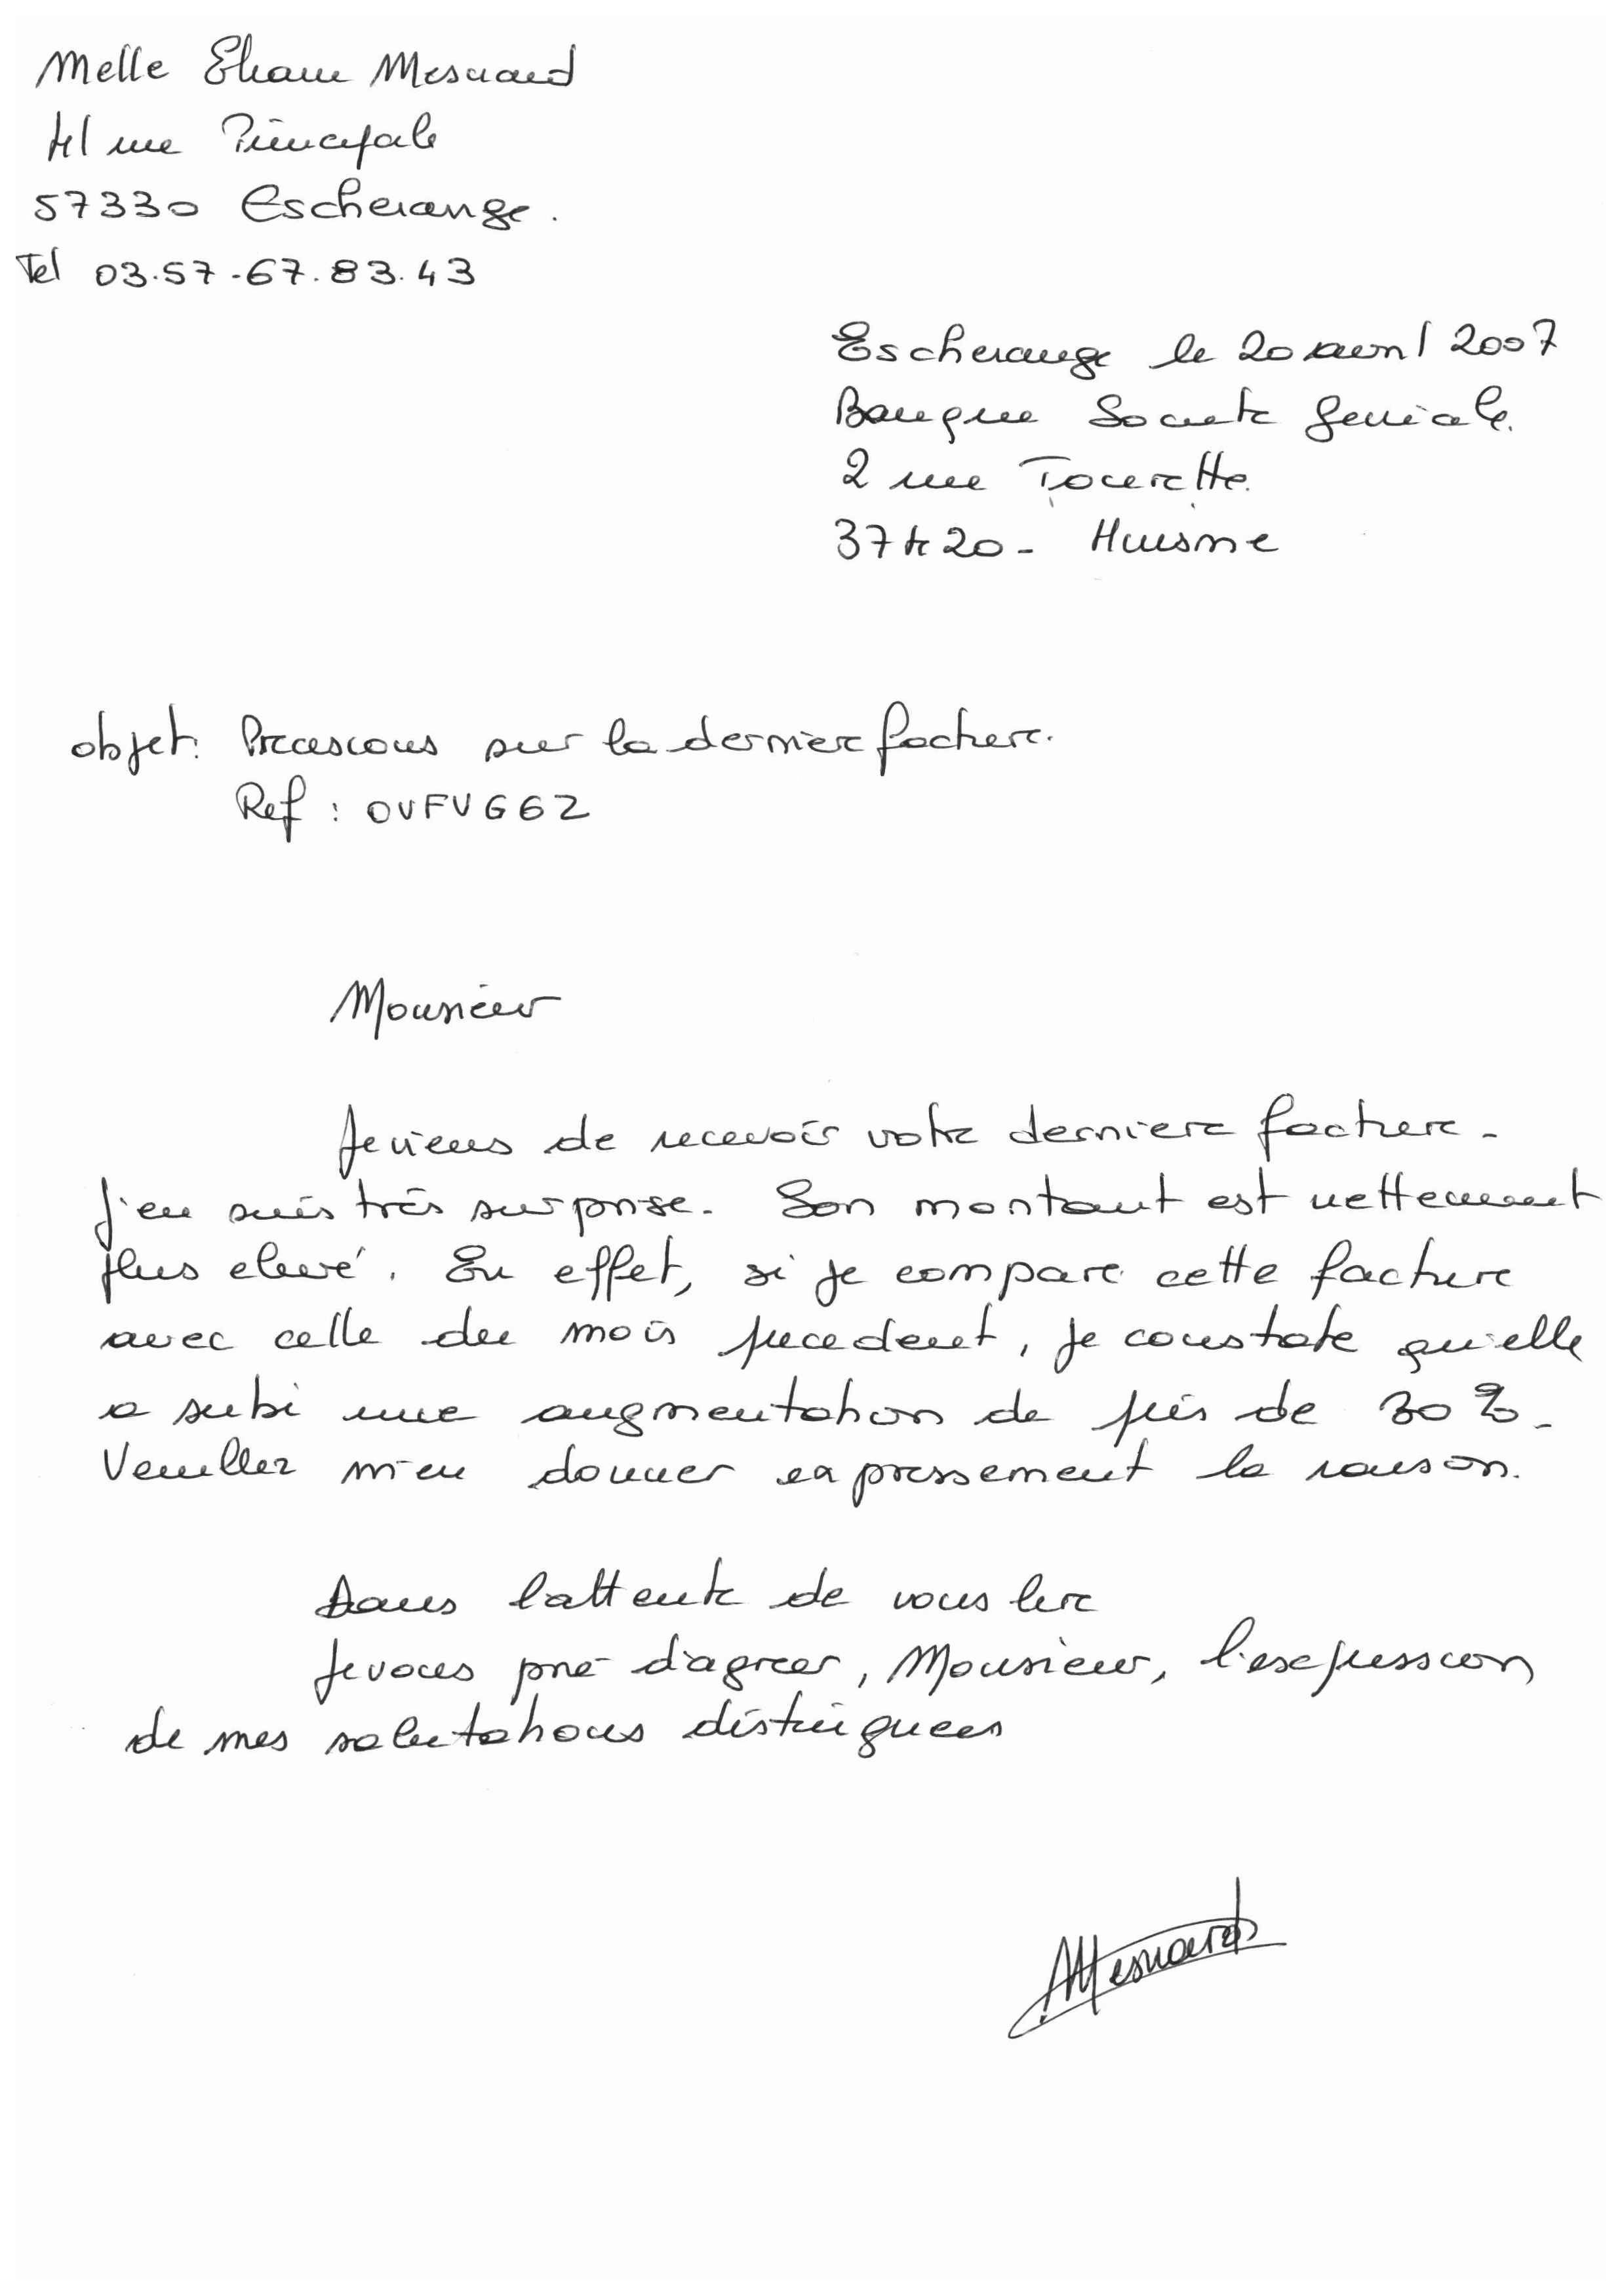 Melle Eliane Mesnard
41 rue Principale
57330 Escherange.
Tel 03.57-67.83.43
Escherange le 20 avril 2007
Banque Societe Generale.
2 rue Tourette.
37420 - Huisme
objet: Precisions sur la derniere facture.
Ref : OVFVG62
Monsieur
Je viens de recevoir votre derniere facture.
J'en suis très surprise. Son montant est nettement
plus elevé. En effet, si je compare cette facture
avec celle du mois precedent, je constate qu'elle
a subi une augmentation de près de 30%.
Veuillez m'en donner expressement la raison.
Dans l'attente de vous lire
Je vous prie d'agreer, Monsieur, l'expression
de mes salutations distinguees
Mesnard